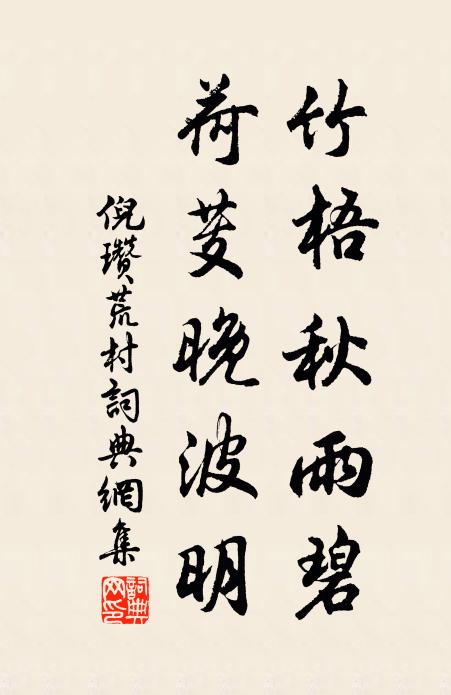 竹梧秋雨碧
荷芰晚波明
倪瓚荒村詞典網集
詞典網印